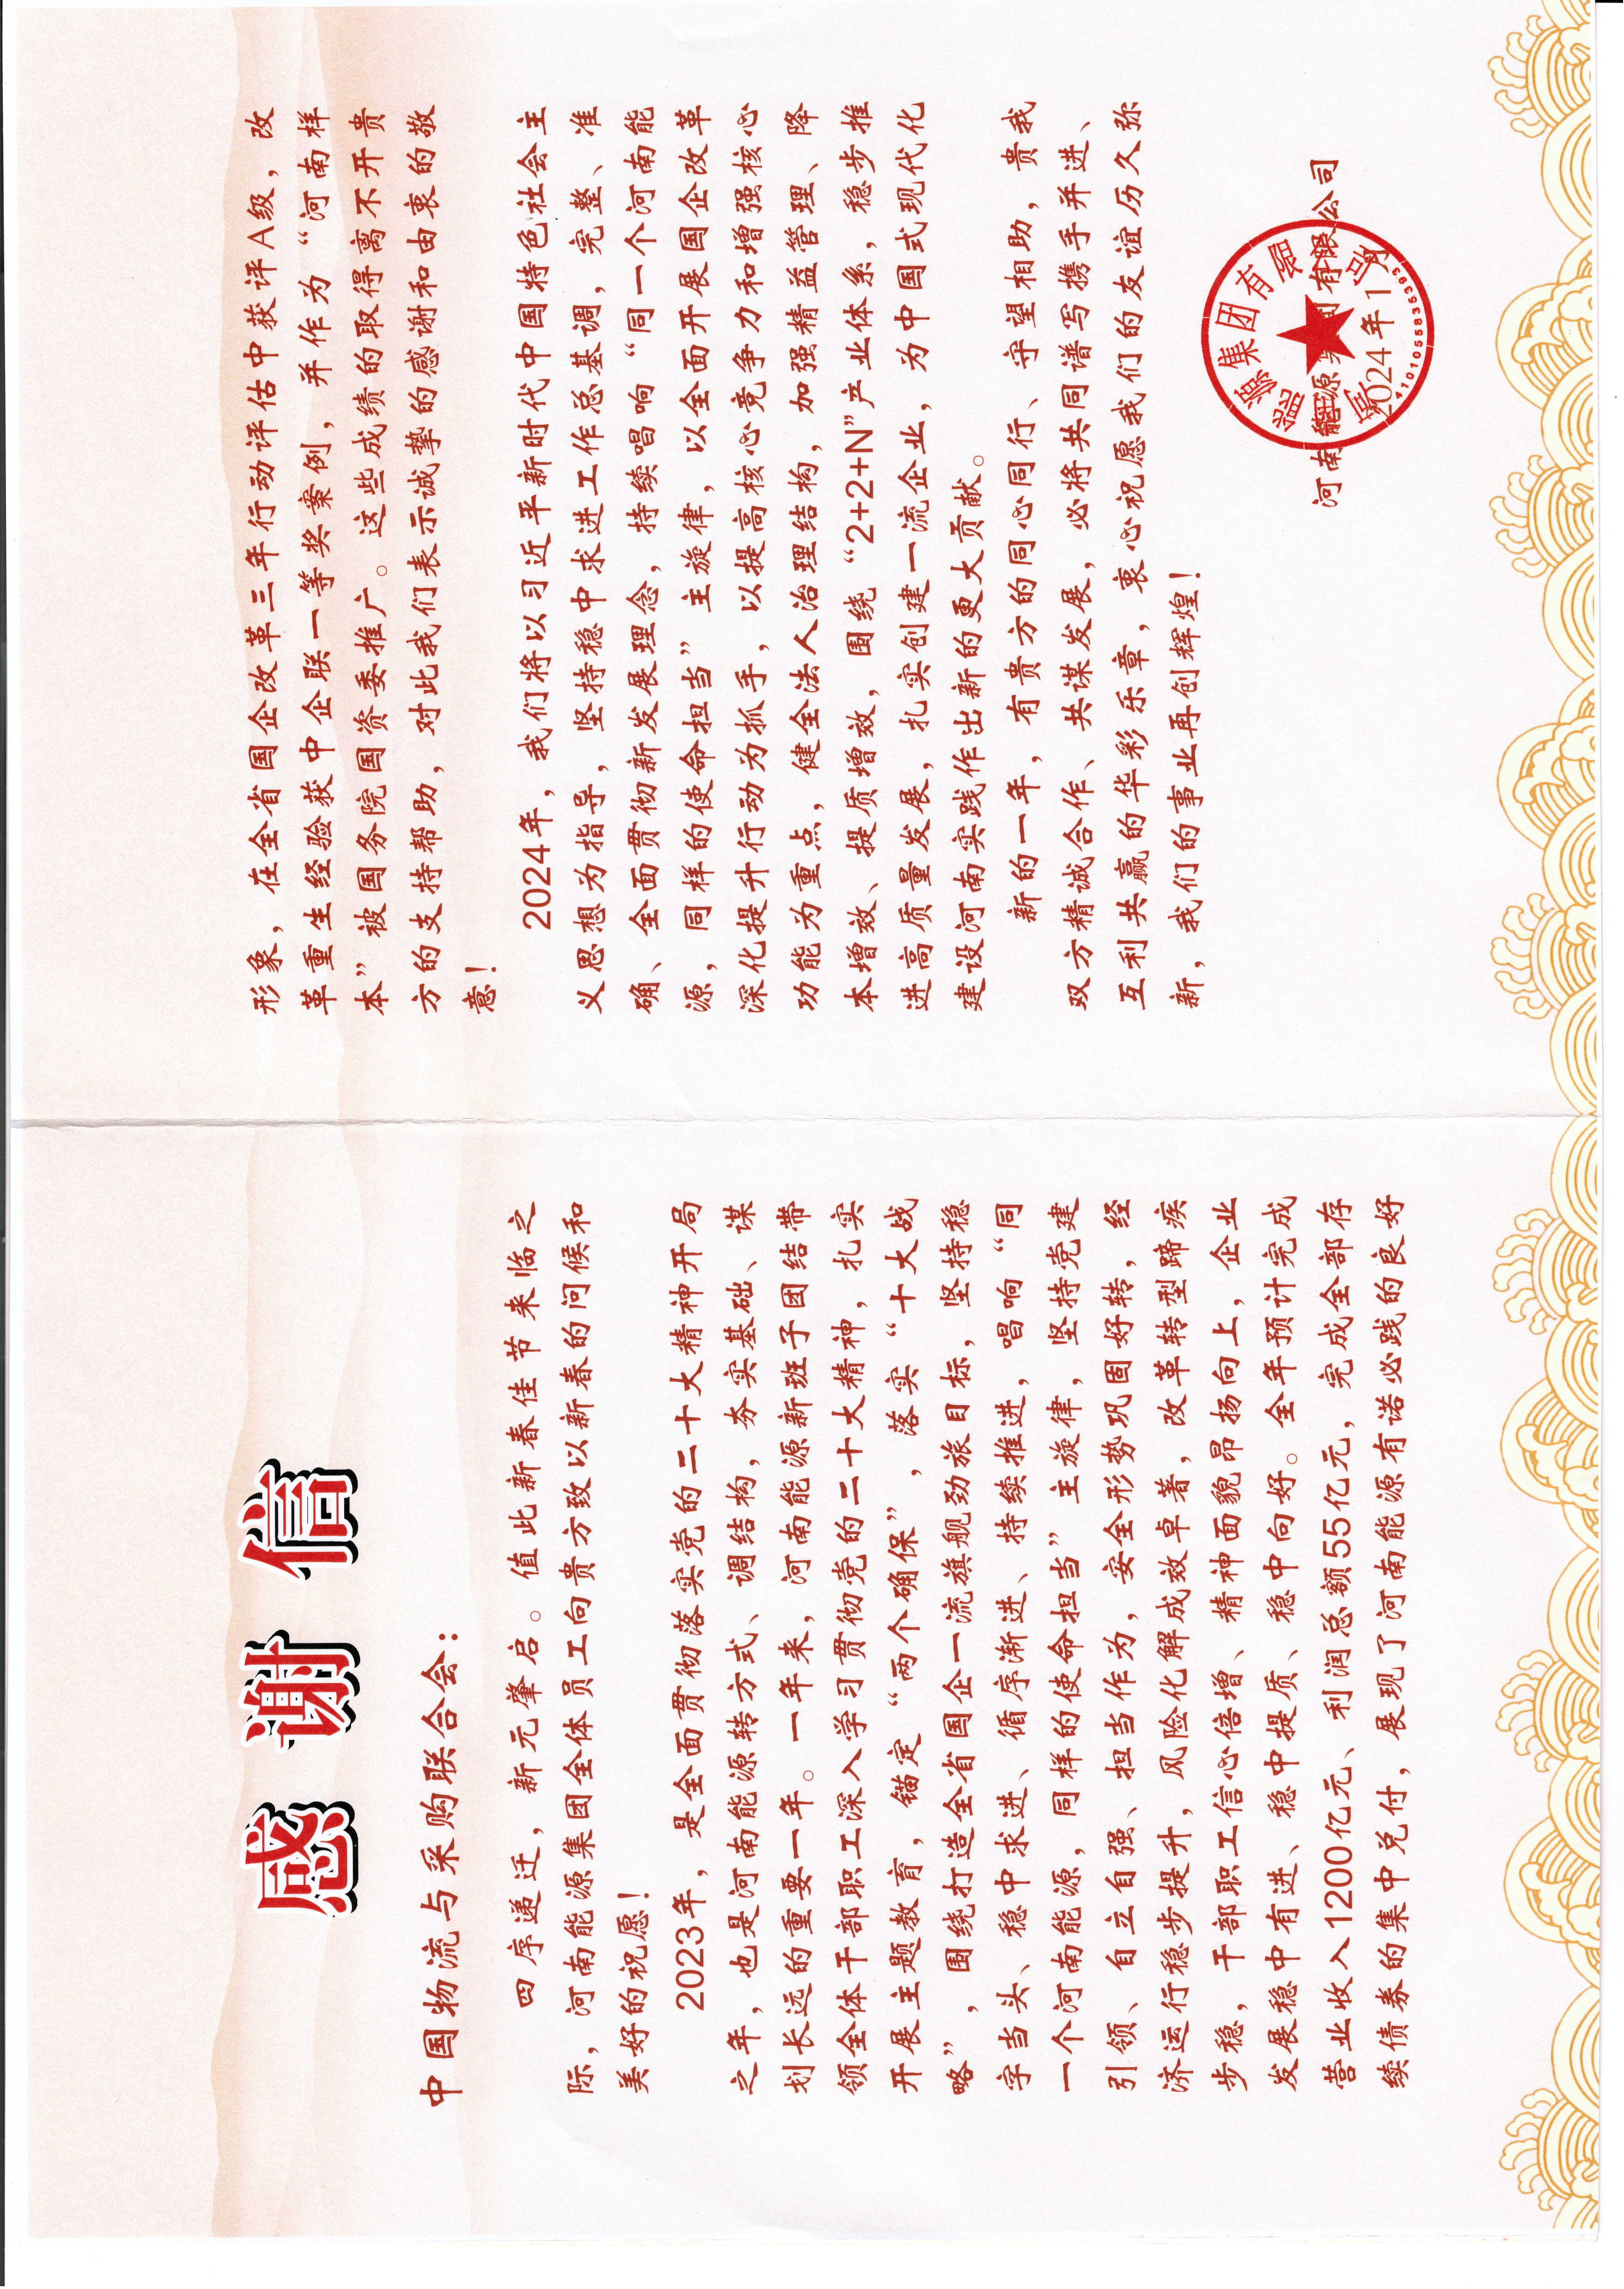 感谢信
中国物流与采购联合会：
四序递迁，新元肇启。值此新春佳节来临之
际，河南能源集团全体员工向贵方致以新春的问候和
美好的祝愿！
2023年，是全面贯彻落实党的二十大精神开局
之年，也是河南能源转方式、调结构，夯实基础、谋
划长远的重要一年。一年来，河南能源新班子团结带
领全体干部职工深入学习贯彻党的二十大精神，扎实
开展主题教育，锚定“两个确保”，落实“十大战
略”，围绕打造全省国企一流旗舰劲旅目标，坚持稳
字当头、稳中求进、循序渐进、持续推进，唱响“同
一个河南能源，同样的使命担当”主旋律，坚持党建
引领、自立自强、担当作为，安全形势巩固好转，经
济运行稳步提升，风险化解成效卓著，改革转型蹄疾
步稳，干部职工信心倍增、精神面貌昂扬向上，企业
发展稳中有进、稳中提质、稳中向好。全年预计完成
营业收入1200亿元、利润总额55亿元，完成全部存
续债券的集中兑付，展现了河南能源有诺必践的良好
形象，在全省国企改革三年行动评估中获评A级，改
革重生经验获中企联一等奖案例，并作为“河南样
本”被国务院国资委推广。这些成绩的取得离不开贵
方的支持帮助，对此我们表示诚挚的感谢和由衷的敬
意！
2024年，我们将以习近平新时代中国特色社会主
义思想为指导，坚持稳中求进工作总基调，完整、准
确、全面贯彻新发展理念，持续唱响“同一个河南能
源，同样的使命担当”主旋律，以全面开展国企改革
深化提升行动为抓手，以提高核心竞争力和增强核心
功能为重点，健全法人治理结构，加强精益管理、降
本增效、提质增效，围绕“2+2+N”产业体系，稳步推
进高质量发展，扎实创建一流企业，为中国式现代化
建设河南实践作出新的更大贡献。
新的一年，有贵方的同心同行、守望相助，贵我
双方精诚合作、共谋发展，必将共同谱写携手并进、
互利共赢的华彩乐章，衷心祝愿我们的友谊历久弥
新，我们的事业再创辉煌！
河南能源集团有限公司
2024年1月
4101055835393